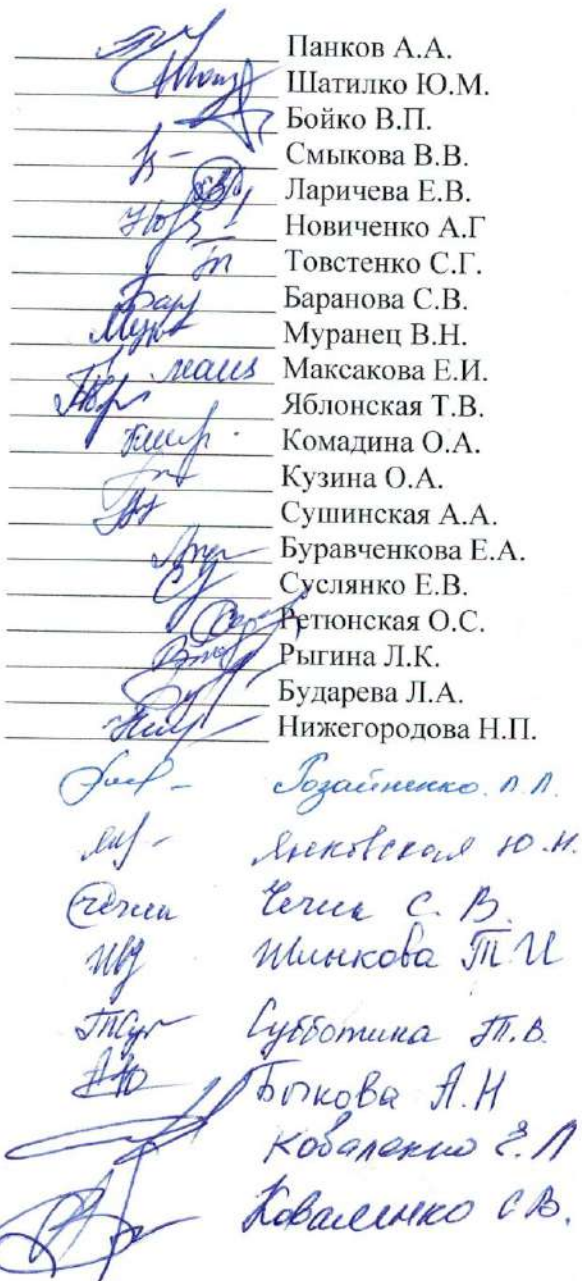 Панков А.А.
Шатилко Ю.М.
Бойко В.П.
Смыкова В.В.
Ларичева Е.В.
Новиченко А.Г
Товстенко С.Г.
Баранова С.В.
Муранец В.Н.
Максакова Е.И.
Яблонская Т.В.
Комадина О.А.
Кузина О.А.
Сушинская А.А.
Буравченкова Е.А.
Суслянко Е.В.
Ретюнская О.С.
Рыгина Л.К.
Бударева Л.А.
Нижегородова Н.П.
Л.Л.
Янковская Ю.Н.
С. В.
Шлыкова Т И
Субботина Т.В.
Быкова А.Н
Коваленко Е.Л
Коваленко С В.